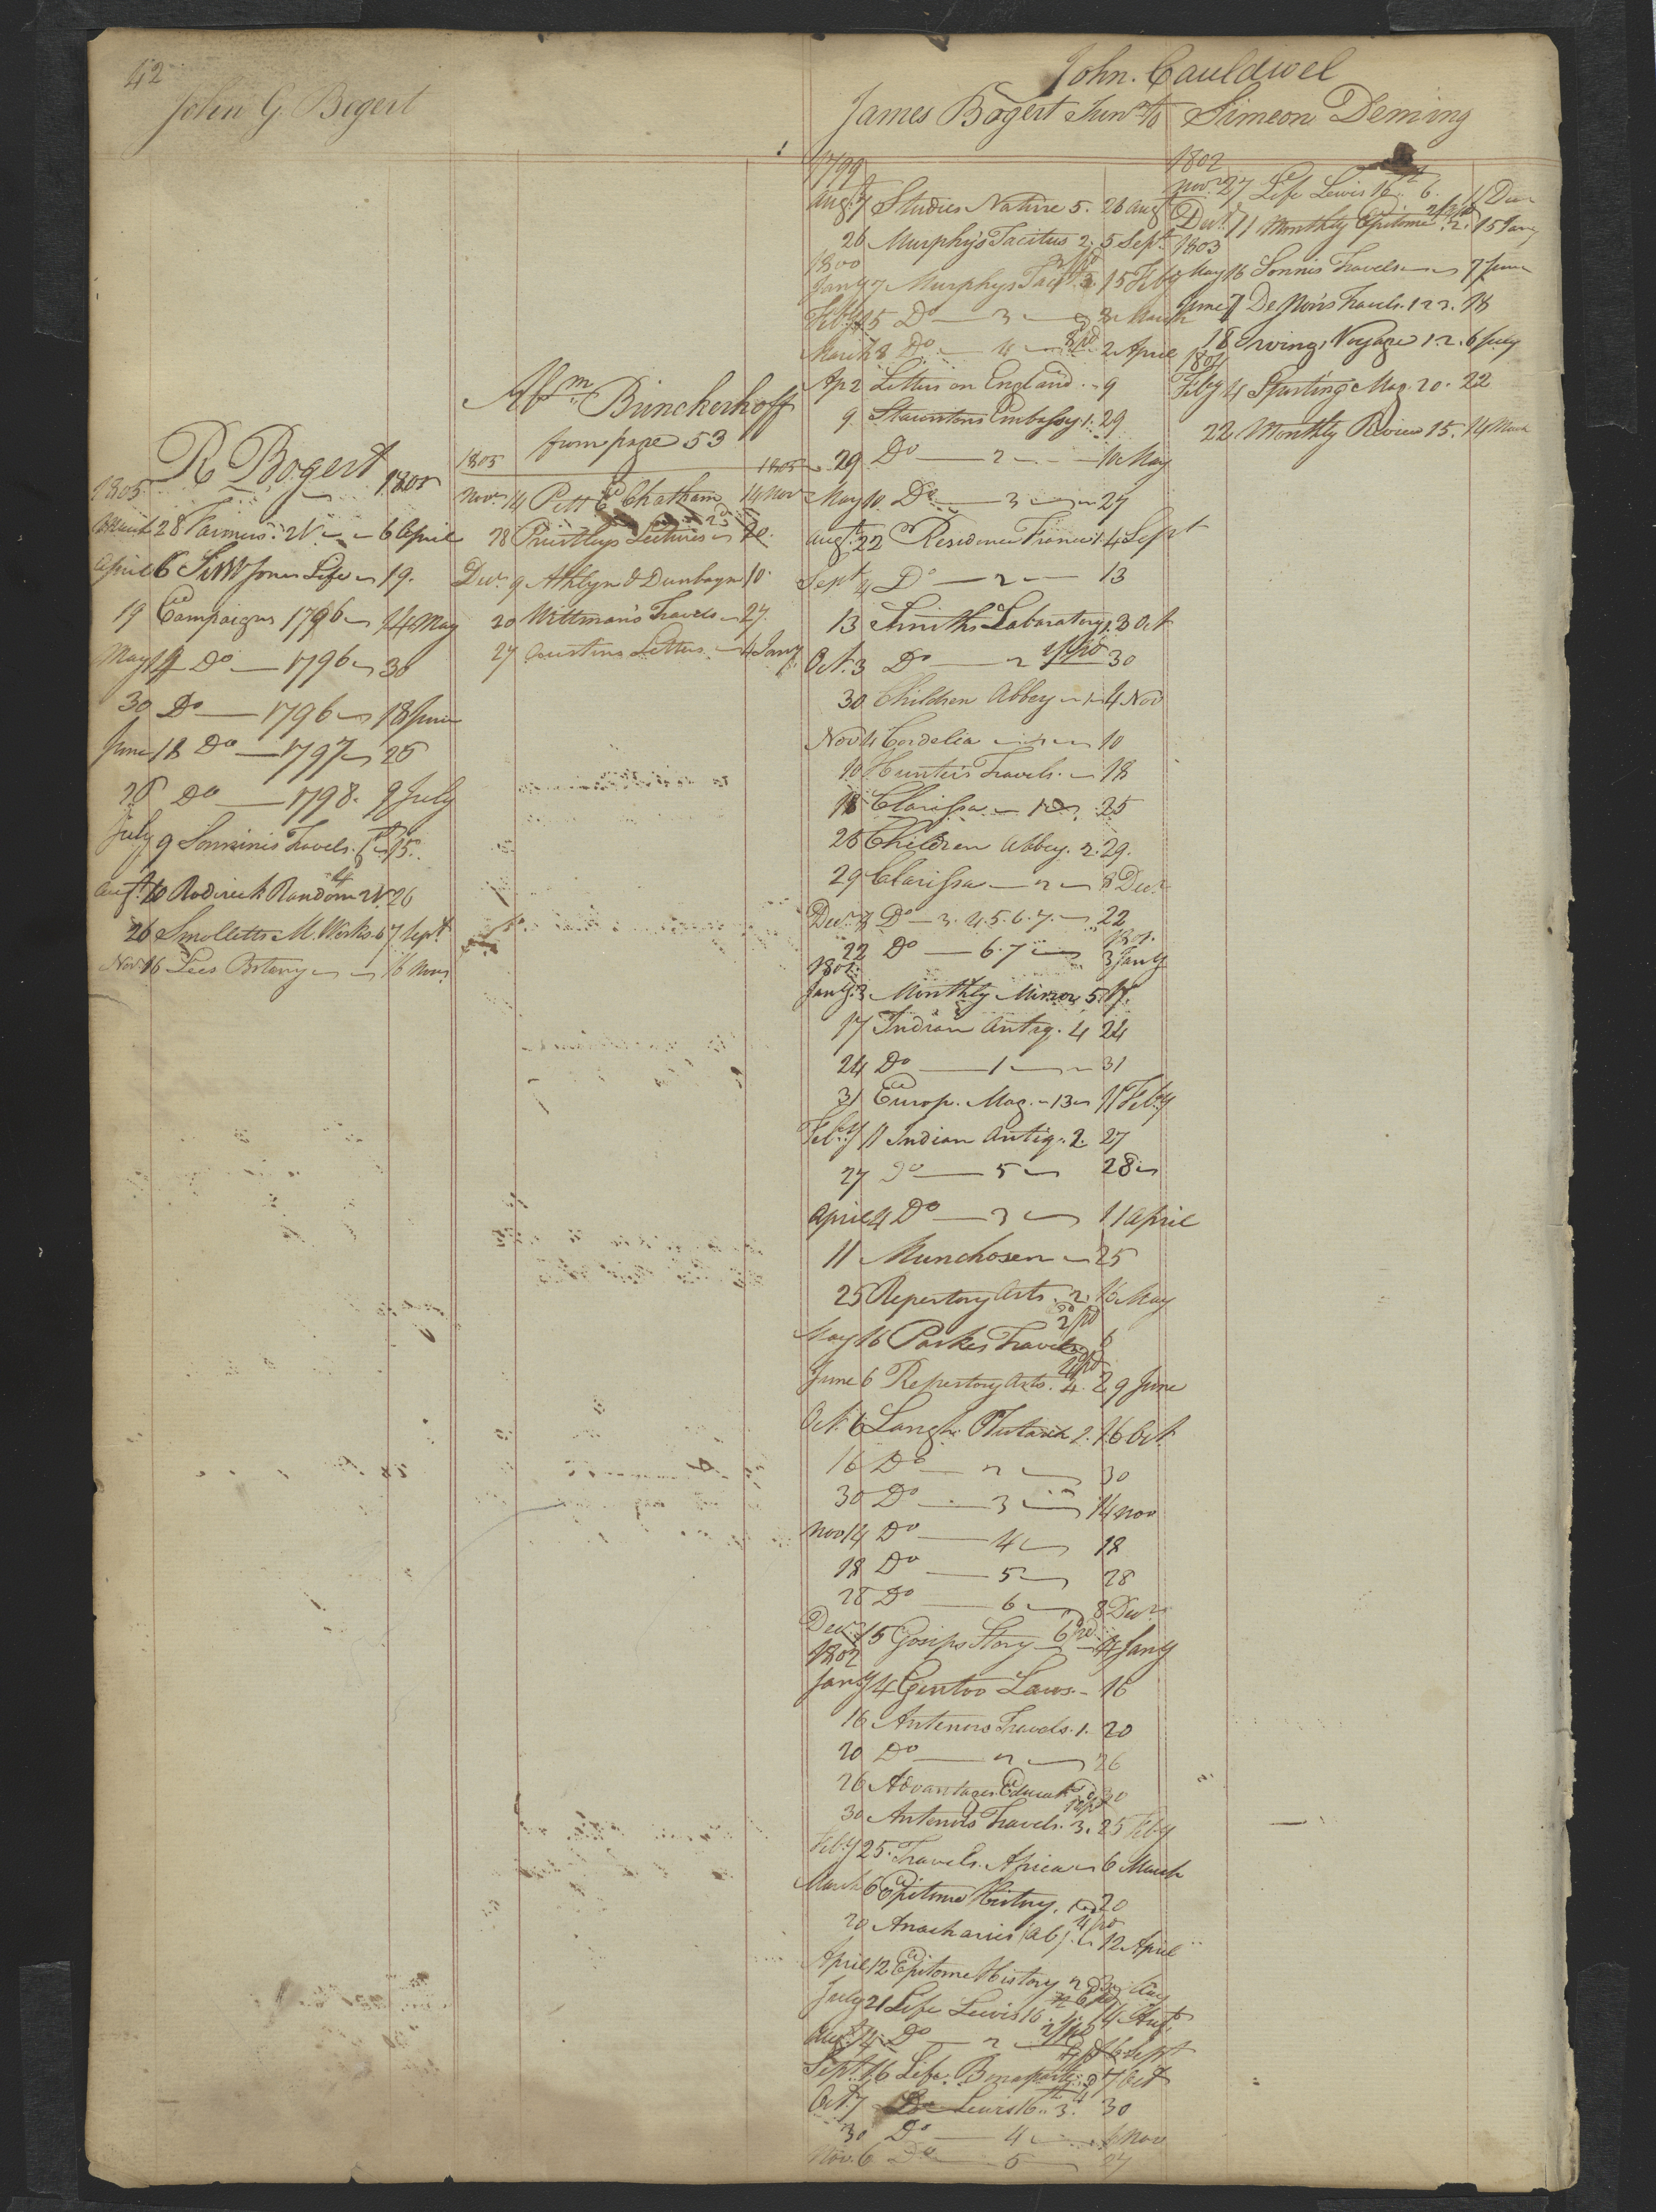 42
John G. Bogert
R Bogert
1805 1805
March 28 Farmers 2V 6 April
April 6 Sir W Jones Life 19
19 Campaigns 1796 14 May
May 14 Do 1796 30
30 Do 1796 18 June
June 18 Do 1797 25
25 Do 1798. 9 July
July 9 Sonninis Travels. 15.
Augt. 10 Roderick Random 2V 26
26 Smolletts M. Works. 6 7 Sept
Novr 16 Lees Botany 16 Novr
Abm Brinckerhoff
from page 53
1805 1805
Novr 14 Pitt E Chatham 14 Novr
28 Priestleys Lectures Do.
Decr 9 Athlyn & Dunbayn 10
20 Wittman's Travels 27.
27 Austins Letters 4 Jany
John. Cauldwel
James Bogert Junr to Simeon Deming
1799
Augt 7 Studies Nature 5. 26 Augt
26 Murphy's Tacitus 2. 5 Sept.
1800
Jany 7 Murphys Tact. 2. 15 Feby
Feby 15 Do 3 8 March
March 8 Do 4 2 April
Ap 2 Letters on England 9
9 Stauntons Embassy 1. 29
29 Do 2 10 May
May 10 Do 3 27
Augt. 22 Residence France 1. 4 Sept
Sept 4 Do 2 13
13 Smiths Laboratory 1. 3 Oct
Oct. 3 Do 2 30
30 Children Abbey 1 4 Nov
Nov 4 Cordelia 10
10 Hunter's Travels. 18
18 Clarissa 1 25
25 Children Abbey. 2. 29.
29 Clarissa 2 8 Decr
Decr 8 Do 3. 4. 5. 6. 7. 22
22 Do 6. 7 3 Jany
1801.
Jany. 3 Monthly Mirror 5. 17.
17 Indian Antiq. 4 24
24 Do 1 31
31 Europ. Mag. 13 11 Feby
Feby 11 Indian Antiq. 2. 27
27 Do 5 28
April 4 Do 3 11 April
11 Munchosen 25
25 Repertory Arts. 2. 16 May
May 16 Parkes Travels 6
June 6 Repertory Arts. 4. 29 June
Oct. 6 Langh. Plutarch 2. 16 Oct.
16 Do 2 30
30 Do 3 14 Nov
Nov 14 Do 4 18
18 Do 5 28
28 Do 6 8 Decr
Decr 15 Gosips Story 4 Jany
1802
Jany 4 Gentoo Laws. 16
16 Antenors Travels. 1. 20
20 Do 2 26
26 Advantages Educat 30
30 Antenors Travels. 3. 25 Feby
Feby 25 Travels Africa 6 March
March 6 Epitome History. 1 20
20 Anacharsis (ab). 12 April
April 12 Epitome History 2 May
July 21 Life Lewis 16. 1. 14 Augt.
Augt 14 Do 2 16 Sept
Sept. 16 Life Bonaparte 7 Oct
Oct. 7 Do Lewis 16th. 3. 30
30 Do 4 6 Nov
Nov. 6 Do 5 27
1802
Novr 27 Life Lewis 16th 6. 11 Decr
Decr. 11 Monthly Epitome 2. 15 Jany
1803
May 16 Sonnis Travels 7 June
June 7 De Non's Travels. 1 2 3. 18
18 Irving's Voyage 1. 2. 6 July
Feby 4 Sporting Mag. 20. 22
22 Monthly Review 15. 14 March